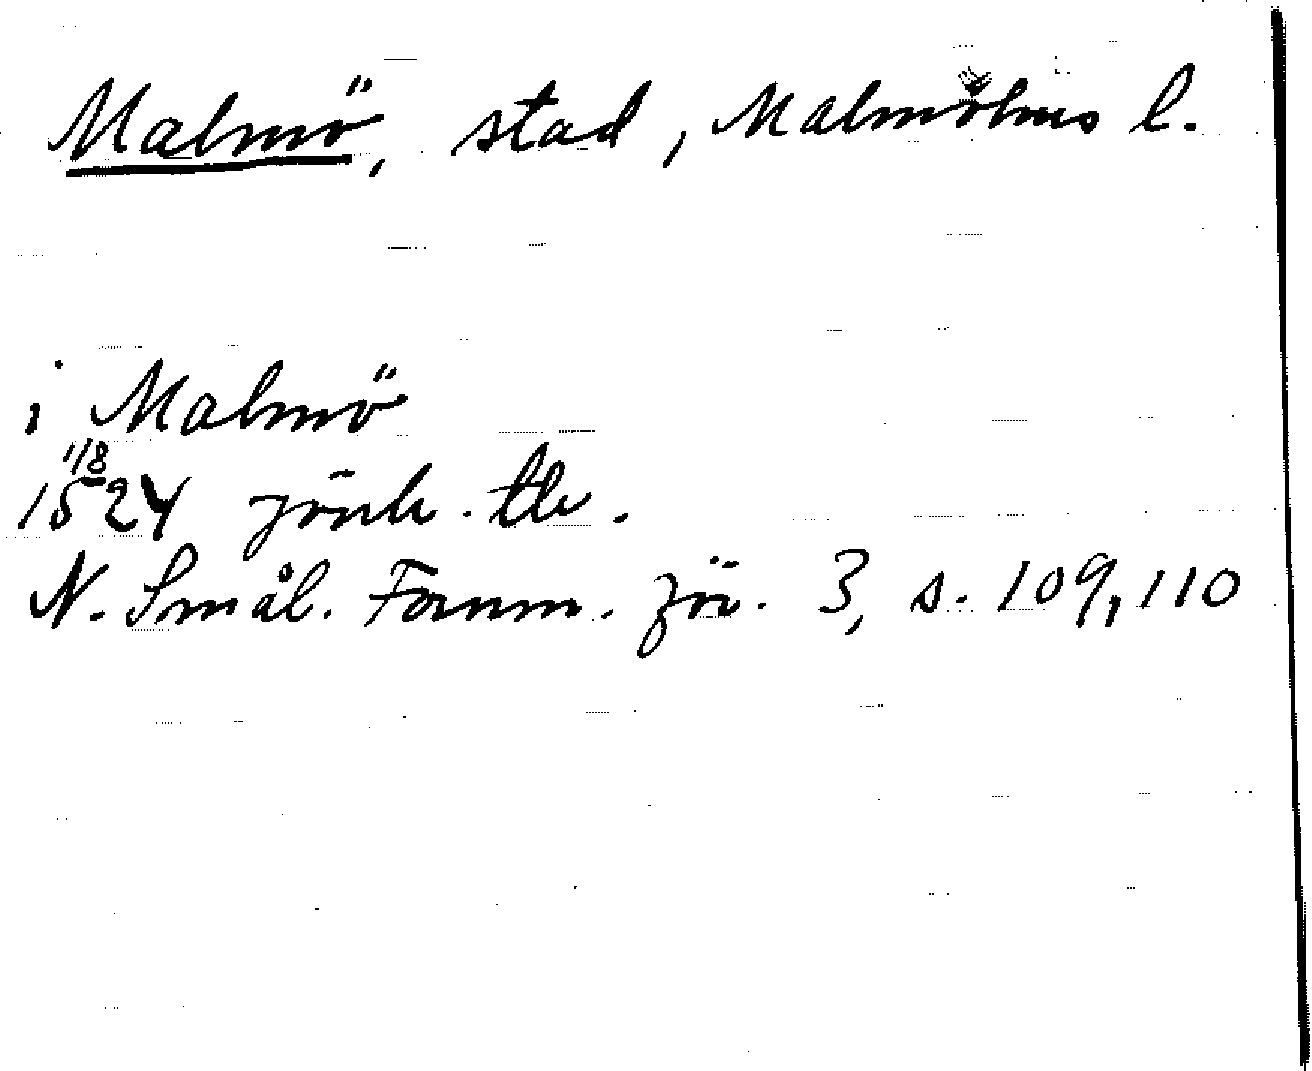 Malmö, stad, Malmöhus l.
i Malmö
1/8
1524 Jönk. tb.
N. Smål. Fornm. för. 3, s. 109, 110